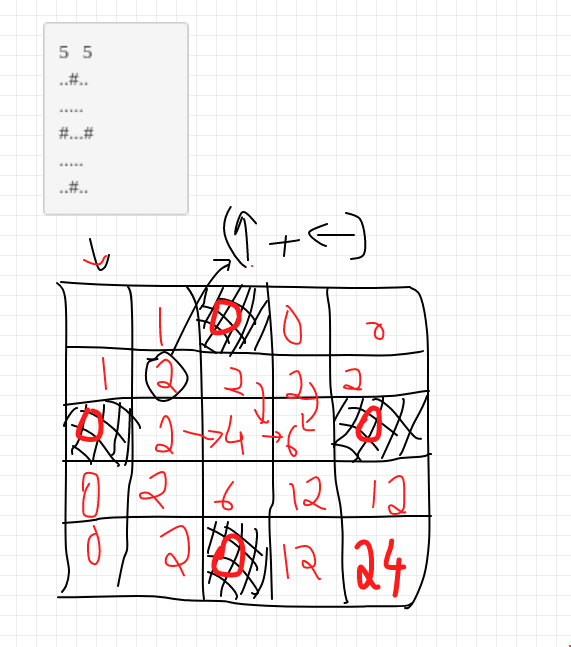 5 5
..#..
.....
#...#
.....
..#..
(↑ + ←)
1 0 0 0
1 2 2 2 2
0 2 → 4 → 6 0
0 2 6 12 12
0 2 0 12 24